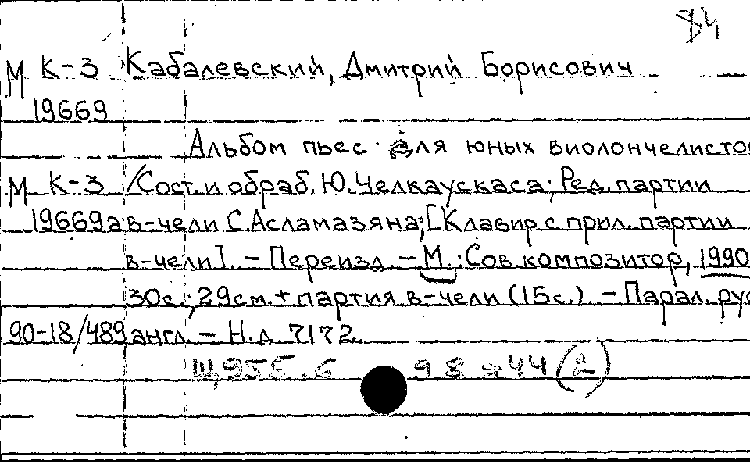 84
М К-3 Кабалевский, Дмитрий Борисович
19669
Альбом пьес для юных виолончелисто
М К-3 /Сост. и обраб. Ю. Челкаускаса; Ред. партии
19669а в-чели С. Асламазяна; [Клавир с прил. партии
в-чели]. – Переизд. – М.: Сов. композитор, 1990
30 с.; 29 см. + партия в-чели (15 с.). – Парал. рус
90-18/489 англ. – Н.д. 7172.
(2)